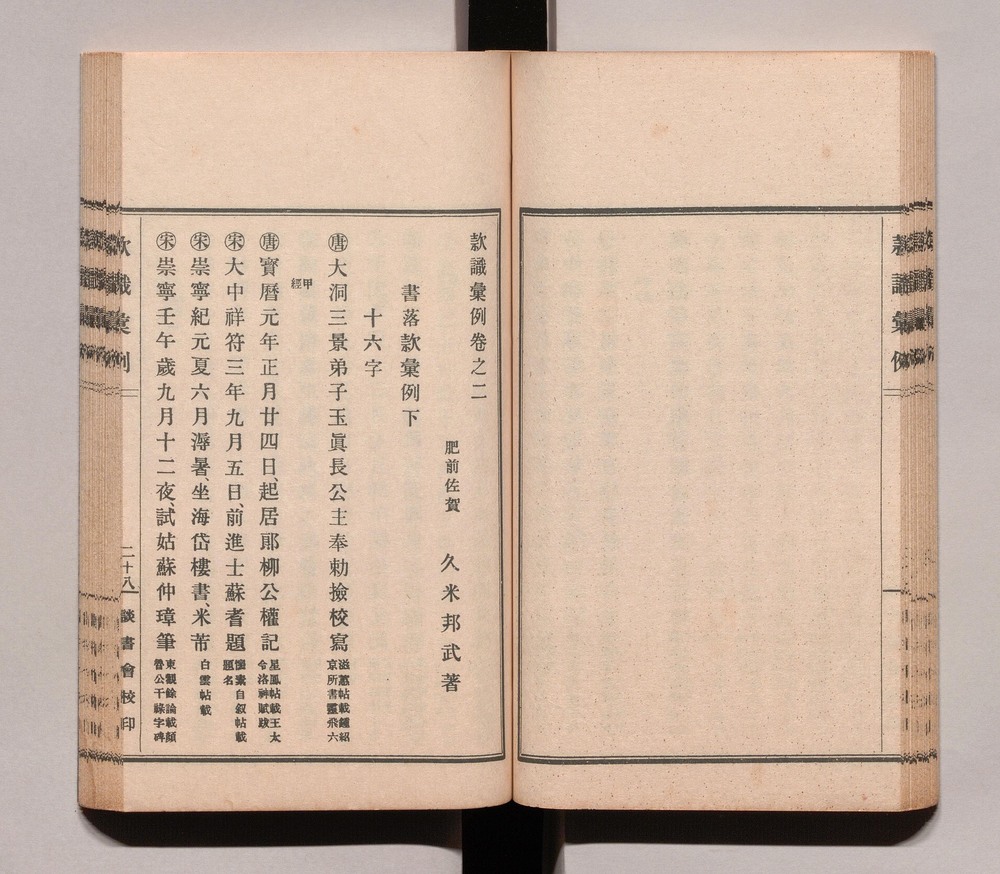 款識彙例卷之二
肥前佐賀　久米邦武著
書落款彙例下
十六字
㊞唐大洞三景弟子玉眞長公主奉勅撿校寫 滋蕙帖載鍾紹京所書靈飛六甲經
唐寶曆元年正月廿四日、起居郎柳公權記 星鳳帖載王大令洛神賦跋
宋大中祥符三年九月五日、前進士蘇耆題 懷素自叙帖載題名
宋崇寧紀元夏六月溽暑、坐海岱樓書、米芾 白雲帖載
宋崇寧壬午歲九月十二夜、試姑蘇仲璋筆 東觀餘論載顏魯公干祿字碑
款識彙例
二十八
談書會校印
款識彙例